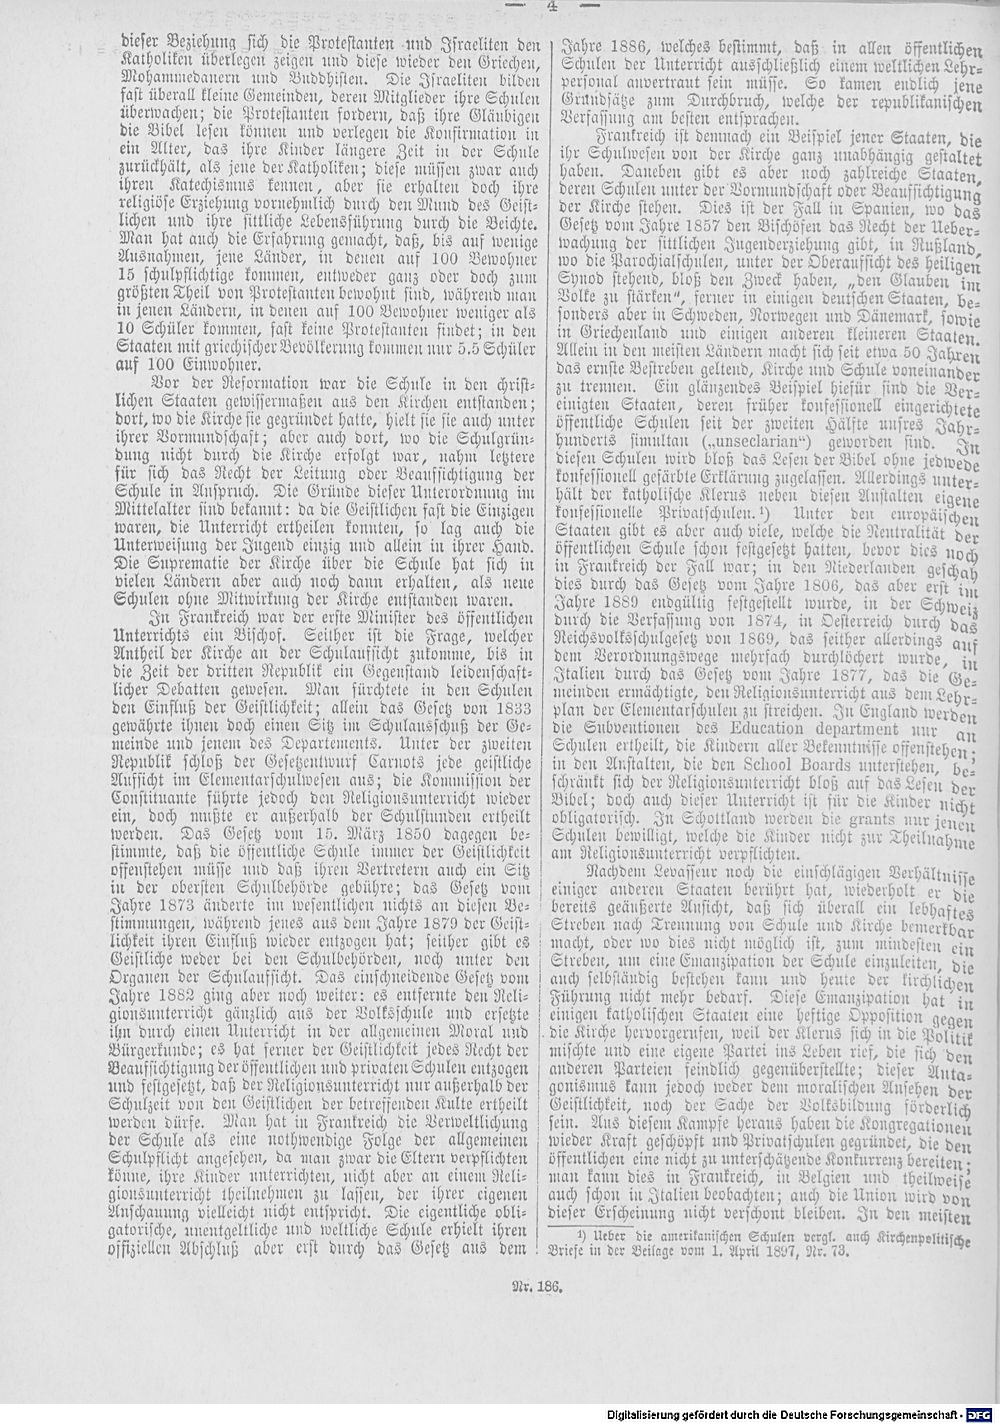 — 4 —
dieser Beziehung sich die Protestanten und Israeliten den
Katholiken überlegen zeigen und diese wieder den Griechen,
Mohammedanern und Buddhisten. Die Israeliten bilden
fast überall kleine Gemeinden, deren Mitglieder ihre Schulen
überwachen; die Protestanten fordern, daß ihre Gläubigen
die Bibel lesen können und verlegen die Konfirmation in
ein Alter, das ihre Kinder längere Zeit in der Schule
zurückhält, als jene der Katholiken; diese müssen zwar auch
ihren Katechismus kennen, aber sie erhalten doch ihre
religiöse Erziehung vornehmlich durch den Mund des Geist-
lichen und ihre sittliche Lebensführung durch die Beichte.
Man hat auch die Erfahrung gemacht, daß, bis auf wenige
Ausnahmen, jene Länder, in denen auf 100 Bewohner
15 schulpflichtige kommen, entweder ganz oder doch zum
größten Theil von Protestanten bewohnt sind, während man
in jenen Ländern, in denen auf 100 Bewohner weniger als
10 Schüler kommen, fast keine Protestanten findet; in den
Staaten mit griechischer Bevölkerung kommen nur 5.5 Schüler
auf 100 Einwohner.
Vor der Reformation war die Schule in den christ-
lichen Staaten gewissermaßen aus den Kirchen entstanden;
dort, wo die Kirche sie gegründet hatte, hielt sie sie auch unter
ihrer Vormundschaft; aber auch dort, wo die Schulgrün-
dung nicht durch die Kirche erfolgt war, nahm letztere
für sich das Recht der Leitung oder Beaufsichtigung der
Schule in Anspruch. Die Gründe dieser Unterordnung im
Mittelalter sind bekannt: da die Geistlichen fast die Einzigen
waren, die Unterricht ertheilen konnten, so lag auch die
Unterweisung der Jugend einzig und allein in ihrer Hand.
Die Suprematie der Kirche über die Schule hat sich in
vielen Ländern aber auch noch dann erhalten, als neue
Schulen ohne Mitwirkung der Kirche entstanden waren.
In Frankreich war der erste Minister des öffentlichen
Unterrichts ein Bischof. Seither ist die Frage, welcher
Antheil der Kirche an der Schulaufsicht zukomme, bis in
die Zeit der dritten Republik ein Gegenstand leidenschaft-
licher Debatten gewesen. Man fürchtete in den Schulen
den Einfluß der Geistlichkeit; allein das Gesetz von 1833
gewährte ihnen doch einen Sitz im Schulausschuß der Ge-
meinde und jenem des Departements. Unter der zweiten
Republik schloß der Gesetzentwurf Carnots jede geistliche
Aufsicht im Elementarschulwesen aus; die Kommission der
Constituante führte jedoch den Religionsunterricht wieder
ein, doch mußte er außerhalb der Schulstunden ertheilt
werden. Das Gesetz vom 15. März 1850 dagegen be-
stimmte, daß die öffentliche Schule immer der Geistlichkeit
offenstehen müsse und daß ihren Vertretern auch ein Sitz
in der obersten Schulbehörde gebühre; das Gesetz vom
Jahre 1873 änderte im wesentlichen nichts an diesen Be-
stimmungen, während jenes aus dem Jahre 1879 der Geist-
lichkeit ihren Einfluß wieder entzogen hat; seither gibt es
Geistliche weder bei den Schulbehörden, noch unter den
Organen der Schulaufsicht. Das einschneidende Gesetz vom
Jahre 1882 ging aber noch weiter: es entfernte den Reli-
gionsunterricht gänzlich aus der Volksschule und ersetzte
ihn durch einen Unterricht in der allgemeinen Moral und
Bürgerkunde; es hat ferner der Geistlichkeit jedes Recht der
Beaufsichtigung der öffentlichen und privaten Schulen entzogen
und festgesetzt, daß der Religionsunterricht nur außerhalb der
Schulzeit von den Geistlichen der betreffenden Kulte ertheilt
werden dürfe. Man hat in Frankreich die Verweltlichung
der Schule als eine nothwendige Folge der allgemeinen
Schulpflicht angesehen, da man zwar die Eltern verpflichten
könne, ihre Kinder unterrichten, nicht aber an einem Reli-
gionsunterricht theilnehmen zu lassen, der ihrer eigenen
Anschauung vielleicht nicht entspricht. Die eigentliche obli-
gatorische, unentgeltliche und weltliche Schule erhielt ihren
offiziellen Abschluß aber erst durch das Gesetz aus dem
Jahre 1886, welches bestimmt, daß in allen öffentlichen
Schulen der Unterricht ausschließlich einem weltlichen Lehr-
personal anvertraut sein müsse. So kamen endlich jene
Grundsätze zum Durchbruch, welche der republikanischen
Verfassung am besten entsprachen.
Frankreich ist demnach ein Beispiel jener Staaten, die
ihr Schulwesen von der Kirche ganz unabhängig gestaltet
haben. Daneben gibt es aber noch zahlreiche Staaten,
deren Schulen unter der Vormundschaft oder Beaufsichtigung
der Kirche stehen. Dies ist der Fall in Spanien, wo das
Gesetz vom Jahre 1857 den Bischöfen das Recht der Ueber-
wachung der sittlichen Jugenderziehung gibt, in Rußland,
wo die Parochialschulen, unter der Oberaufsicht des heiligen
Synod stehend, bloß den Zweck haben, „den Glauben im
Volke zu stärken“, ferner in einigen deutschen Staaten, be-
sonders aber in Schweden, Norwegen und Dänemark, sowie
in Griechenland und einigen anderen kleineren Staaten.
Allein in den meisten Ländern macht sich seit etwa 50 Jahren
das ernste Bestreben geltend, Kirche und Schule voneinander
zu trennen. Ein glänzendes Beispiel hiefür sind die Ver-
einigten Staaten, deren früher konfessionell eingerichtete
öffentliche Schulen seit der zweiten Hälfte unsres Jahr-
hunderts simultan („unseclarian“) geworden sind. In
diesen Schulen wird bloß das Lesen der Bibel ohne jedwede
konfessionell gefärbte Erklärung zugelassen. Allerdings unter-
hält der katholische Klerus neben diesen Anstalten eigene
konfessionelle Privatschulen.¹) Unter den europäischen
Staaten gibt es aber auch viele, welche die Neutralität der
öffentlichen Schule schon festgesetzt hatten, bevor dies noch
in Frankreich der Fall war; in den Niederlanden geschah
dies durch das Gesetz vom Jahre 1806, das aber erst im
Jahre 1889 endgültig festgestellt wurde, in der Schweiz
durch die Verfassung von 1874, in Oesterreich durch das
Reichsvolksschulgesetz von 1869, das seither allerdings auf
dem Verordnungswege mehrfach durchlöchert wurde, in
Italien durch das Gesetz vom Jahre 1877, das die Ge-
meinden ermächtigte, den Religionsunterricht aus dem Lehr-
plan der Elementarschulen zu streichen. In England werden
die Subventionen des Education department nur an
Schulen ertheilt, die Kindern aller Bekenntnisse offenstehen;
in den Anstalten, die den School Boards unterstehen, be-
schränkt sich der Religionsunterricht bloß auf das Lesen der
Bibel; doch auch dieser Unterricht ist für die Kinder nicht
obligatorisch. In Schottland werden die grants nur jenen
Schulen bewilligt, welche die Kinder nicht zur Theilnahme
am Religionsunterricht verpflichten.
Nachdem Levasseur noch die einschlägigen Verhältnisse
einiger anderen Staaten berührt hat, wiederholt er die
bereits geäußerte Ansicht, daß sich überall ein lebhaftes
Streben nach Trennung von Schule und Kirche bemerkbar
macht, oder wo dies nicht möglich ist, zum mindesten ein
Streben, um eine Emanzipation der Schule einzuleiten, die
auch selbständig bestehen kann und heute der kirchlichen
Führung nicht mehr bedarf. Diese Emanzipation hat in
einigen katholischen Staaten eine heftige Opposition gegen
die Kirche hervorgerufen, weil der Klerus sich in die Politik
mischte und eine eigene Partei ins Leben rief, die sich den
anderen Parteien feindlich gegenüberstellte; dieser Anta-
gonismus kann jedoch weder dem moralischen Ansehen der
Geistlichkeit, noch der Sache der Volksbildung förderlich
sein. Aus diesem Kampfe heraus haben die Kongregationen
wieder Kraft geschöpft und Privatschulen gegründet, die den
öffentlichen eine nicht zu unterschätzende Konkurrenz bereiten;
man kann dies in Frankreich, in Belgien und theilweise
auch schon in Italien beobachten; auch die Union wird von
dieser Erscheinung nicht verschont bleiben. In den meisten
¹) Ueber die amerikanischen Schulen vergl. auch Kirchenpolitische
Briefe in der Beilage vom 1. April 1897, Nr. 73.
Nr. 186.
Digitalisierung gefördert durch die Deutsche Forschungsgemeinschaft - DFG